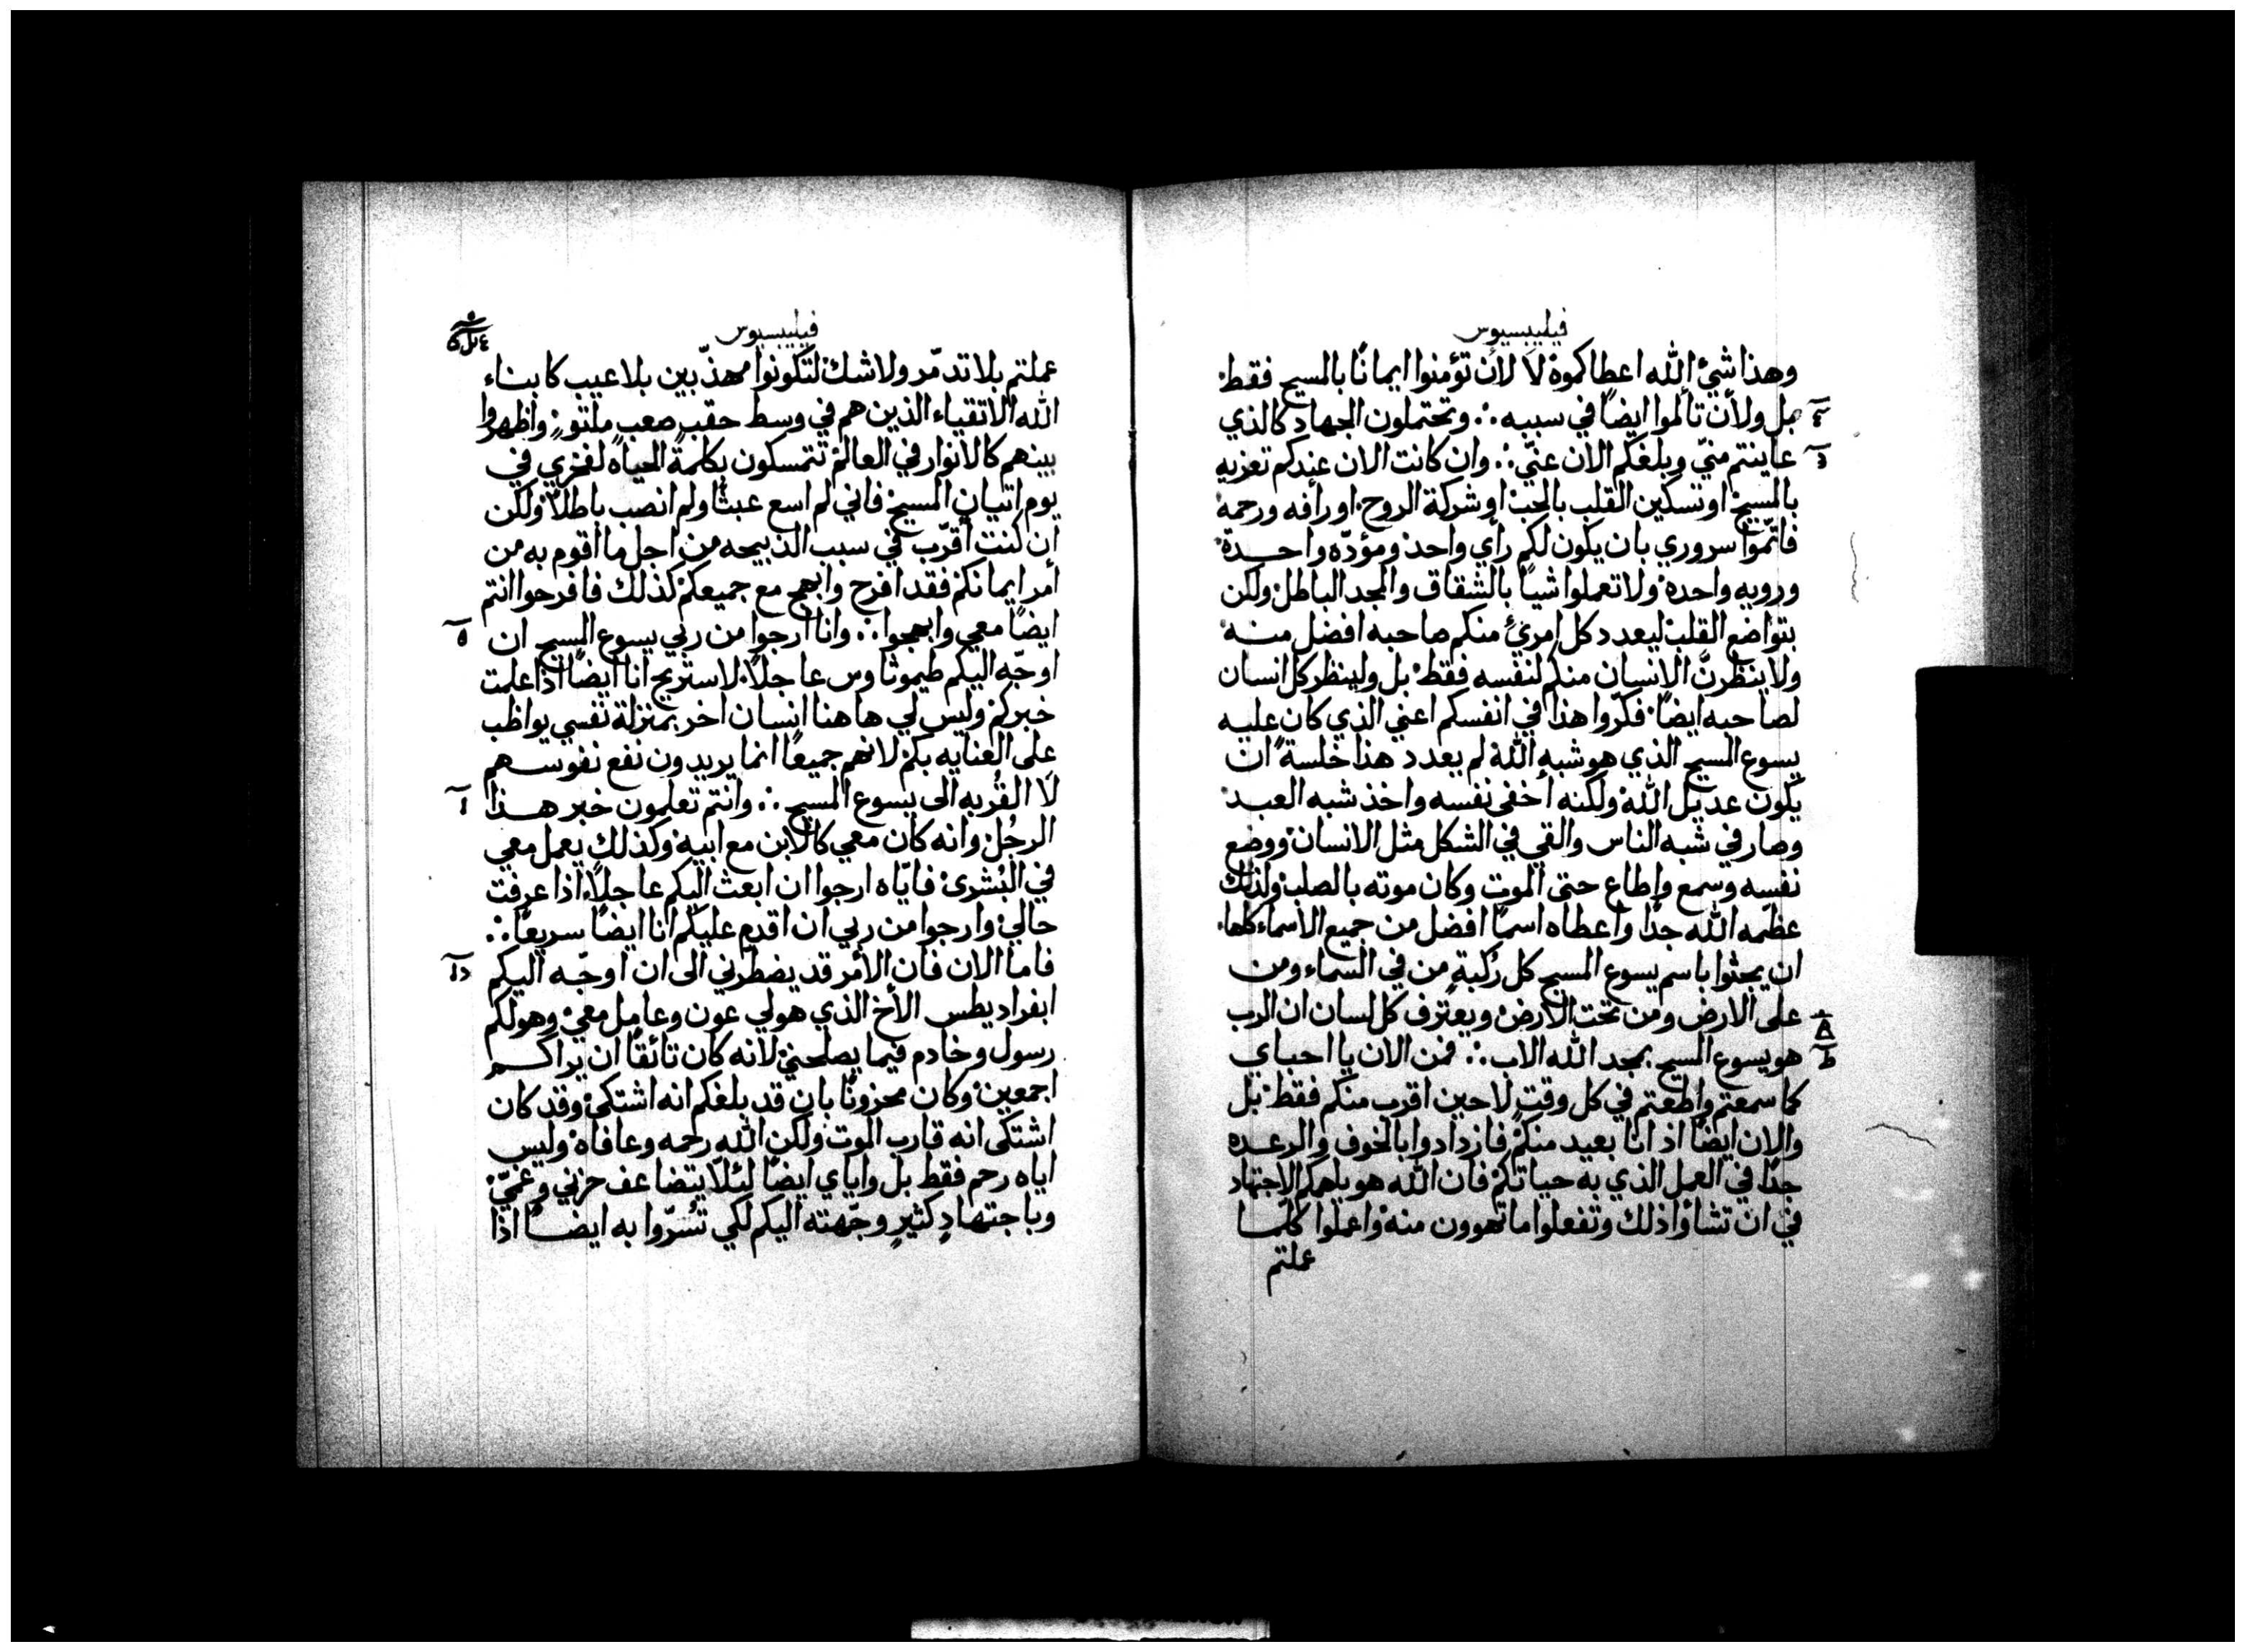 فيليبسيوس
وهذا شيءٌ الله اعطاكموهُ لَا لأن تؤمنوا ايمانًا بالمسيح فقط
بل ولأن تألموا ايضًا في سببه ∴ وتحتملون الجهاد كالذي
عاينتم منيّ وبلغكم الان عنّي ∴ وان كانت الان عندكم تعزيه
بالمسيح او تسكين القلب بالحب او شركة الروح او رافه ورحمه
فاتمّوا سروري بان يكون لكم رأي واحد ومودّه واحدة
ورويه واحده ولا تعملوا شياً بالشقاق والمجد الباطل ولكن
بتواضع القلب ليعدد كل امرئٍ منكم صاحبه افضل منه
ولا ينظرنَّ الانسان منكم لنفسه فقط بل ولينظر كل انسان
لصاحبه ايضًا فكّروا هذا في انفسكم اعني الذي كان عليه
يسوع المسيح الذي هو شبه الله لم يعدد هذا خلسةً ان
يكون عديل الله ولكنه أخفى نفسه واخذ شبه العبد
وصار في شبه الناس والقي في الشكل مثل الانسان ووضع
نفسه وسمع واطاع حتى الموت وكان موته بالصلب ولذلك
عظّمه الله جدًا واعطاه اسمًا افضل من جميع الاسماء كلها
ان يجثوا باسم يسوع المسيح كل رُكبةٍ من في السماء ومن
على الارض ومن تحت الارض ويعترف كل لسان ان الرب
هو يسوع المسيح بمجد الله الاب ∴ فمن الان يا احباي
كما سمعتم واطعتم في كل وقتٍ لا حين اقرب منكم فقط بل
والان ايضًا اذ انا بعيد منكم فازدادوا بالخوف والرعده
جدًا في العمل الذي به حياتكم فان الله هو يلهمكم الاجتهاد
في ان تشاؤا ذلك وتفعلوا ما تهوون منه واعملوا كلّما
عملتم
فيليبسيوس
عملتم بلا تدمّر ولا شك لتكونوا مهذّبين بلا عيب كابناء
الله الاتقياء الذين هم في وسط حقب صعب ملتوٍ واظهروا
بينهم كالانوار في العالم تتمسكون بكلمة الحياه لفخري في
يوم اتيان المسيح فاني لم اسع عبثًا ولم انصب باطلًا ولكن
ان كنت أقرّب في سبب الذبيحه من اجل ما اقوم به من
امر ايمانكم فقد افرح وابهج مع جميعكم كذلك فافرحوا انتم
ايضًا معي وابهجوا ∴ وانا ارجوا من ربي يسوع المسيح ان
اوجّه اليكم طيموثاوس عاجلًا لاستريح انا ايضًا اذا علمت
خبركم وليس لي هاهنا انسان اخر بمنزلة نفسي يواظب
على العنايه بكم لانهم جميعًا انما يريدون نفع نفوسهم
لَا القُربه الى يسوع المسيح ∴ وانتم تعلمون خبر هذا
الرجُل وانه كان معي كالابن مع ابيه وكذلك يعمل معي
في البُشرى فايّاه ارجوا ان ابعث اليكم عاجلًا اذا عرفت
حالي وارجوا من ربي ان اقدم عليكم انا ايضًا سريعًا ∴
فاما الان فان الأمر قد يضطرّني الى ان اوجّه اليكم
ابفراديطس الأخ الذي هو لي عون وعامل معي وهو لكم
رسول وخادم فيما يصلحني لانه كان تائقًا ان يراكم
اجمعين وكان محزونًا بان قد بلغكم انه اشتكى وقد كان
اشتكى انه قارب الموت ولكن الله رحمه وعافاه وليس
اياه رحم فقط بل واياي ايضًا لئلّا يتضاعف حزني وغمّي
وباجتهادٍ كثيرٍ وجّهته اليكم لكي تُسرّوا به ايضًا اذا